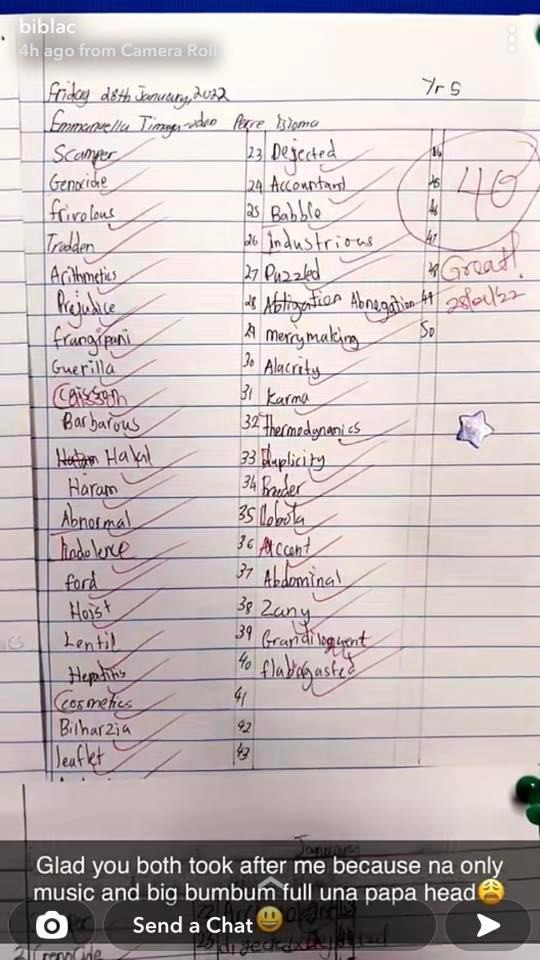 biblac
4h ago from Camera Roll
Friday 28th January, 2022
Yr 5
Emmanuella
Scamper
Genocide
frivolous
Trodden
Arithmetics
Prejudice
frangipani
Guerilla
Caisson
Barbarous
Halal
Haram
Abnormal
Indolence
ford
Hoist
Lentil
Hepatitis
Cosmetics
Bilharzia
leaflet
23 Dejected
24 Accountant
25 Babble
26 Industrious
27 Puzzled
28 Abtigation Abnegation
29 merrymaking
30 Alacrity
31 Karma
32 thermodynamics
33 Duplicity
34
35
36 Accent
37 Abdominal
38 Zany
39 Grandiloquent
40 flabagasted
41
42
43
44
45
46
47
48
49
50
40
Great!
28/01/22
Glad you both took after me because na only
music and big bumbum full una papa head😩
Send a Chat😃